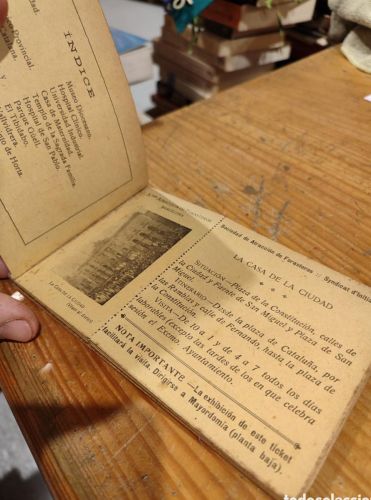 Provincial.
ÍNDICE
Museo Diocesano.
Hospital Clínico.
Universidad Industrial.
Casa de Maternidad.
Templo de la Sagrada Familia.
Hospital de San Pablo.
Parque Güell.
El Tibidabo.
Vallvidrera.
de Horta.
BARCELONA
LA CASA DE LA CIUDAD
Sociedad de Atracción de Forasteros :: Syndicat d'Initia
LA CASA DE LA CIUDAD
SITUACIÓN.—Plaza de la Constitución, calles de
la Ciudad y Fuente de San Miguel y Plaza de San
Miguel.
ITINERARIO.—Desde la plaza de Cataluña, por
las Ramblas y calle de Fernando, hasta la plaza de
la Constitución.
VISITA.—De 10 a 1 y de 4 a 7 todos los días
laborables (excepto las tardes de los en que celebra
sesión el Excmo. Ayuntamiento.
NOTA IMPORTANTE.—La exhibición de este ticket
facilitará la visita. Dirigirse a Mayordomía (planta baja).
todocoleccion